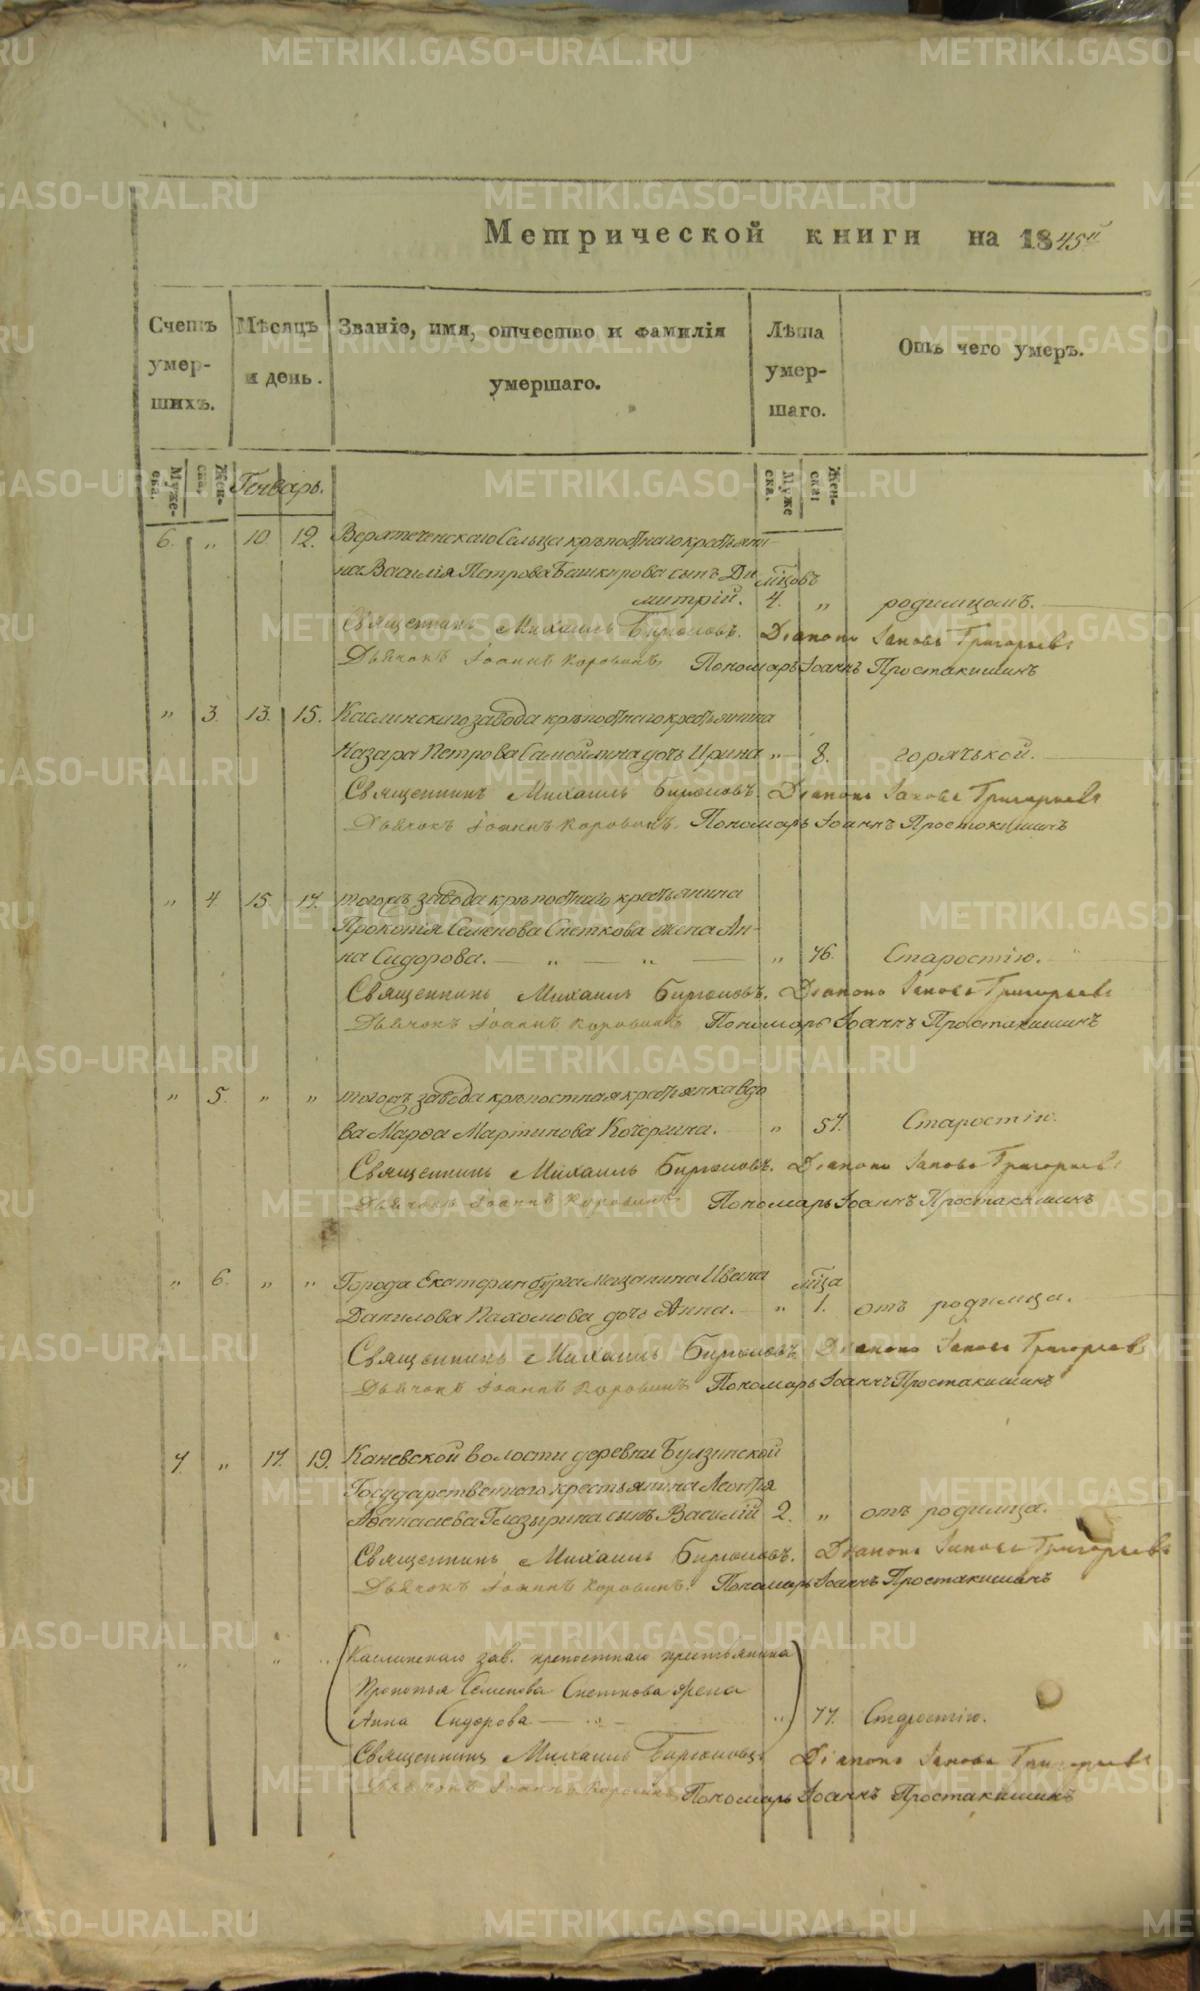 Метрической книги на 1845й
Счетъ умерших. Мѣсяцъ и день. Званіе, имя, отчество и фамилія умершаго. Лѣта умершаго. Отъ чего умеръ.
Муже-ска. Жен-ска. Генварь. Муже ска. Жен-ска:
6. „ 10 12. Верятеченскаго Сельца крѣпостнаго крестьяни-
на Василія Петрова Башкирова сынъ Ди мѣсцовъ
митрій. 4. „ родимцомъ.
Священникъ Михаилъ Бирюковъ. Діаконъ Іаковъ Григорьевъ
Дьячокъ Іоаннъ Коровинъ Пономарь Іоаннъ Простакишинъ
„ 3. 13. 15. Каслинскаго завода крѣпостнаго крестьянина
Назара Петрова Самойлина дочь Ирина „ 8. горячькой.
Священникъ Михаилъ Бирюковъ. Діаконъ Іаковъ Григорьевъ
Дьячокъ Іоаннъ Коровинъ. Пономарь Іоаннъ Простокишинъ
„ 4 15. 17. тогожъ завода крѣпостнаго крестьянина
Прокопія Семенова Снеткова жена Ан-
на Сидорова. — „ — „ — „ 76. Старостію.
Священникъ Михаилъ Бирюковъ. Діаконъ Іаковъ Григорьевъ
Дьячокъ Іоаннъ Коровинъ Пономарь Іоаннъ Простакишинъ
„ 5. „ „ тогожъ завода крѣпостная крестьянка вдо
ва Марѳа Мартинова Кочергина. „ 57. Старостію.
Священникъ Михаилъ Бирюковъ. Діаконъ Іаковъ Григорьевъ
Дьячокъ Іоаннъ Коровинъ. Пономарь Іоаннъ Простакишинъ
„ 6. „ „ Города Екатеринбурга Мещанина Ивана мѣсца
Данилова Пахомова дочь Анна. — „ 1. отъ родимца.
Священникъ Михаилъ Бирюковъ Діаконъ Іаковъ Григорьевъ
Дьячокъ Іоаннъ Коровинъ Пономарь Іоаннъ Простакишинъ
7. „ 17. 19. Каневской волости деревни Булзинской
Государственнаго крестьянина Леонтія
Аѳанасьева Глазырина сынъ Василій 2. „ отъ родимца.
Священникъ Михаилъ Бирюковъ. Діаконъ Іаковъ Григорьевъ
Дьячокъ Іоаннъ Коровинъ. Пономарь Іоаннъ Простакишинъ
„ „ „ (Каслинскаго зав. крепостнаго крестьянина
Прокопья Семенова Снеткова жена
Анна Сидорова — „ — „) 77. Старостію.
Священникъ Михаилъ Бирюковъ Діаконъ Іаковъ Григорьевъ
Дьячокъ Іоаннъ Коровинъ Пономарь Іоаннъ Простакишинъ
METRIKI.GASO-URAL.RU